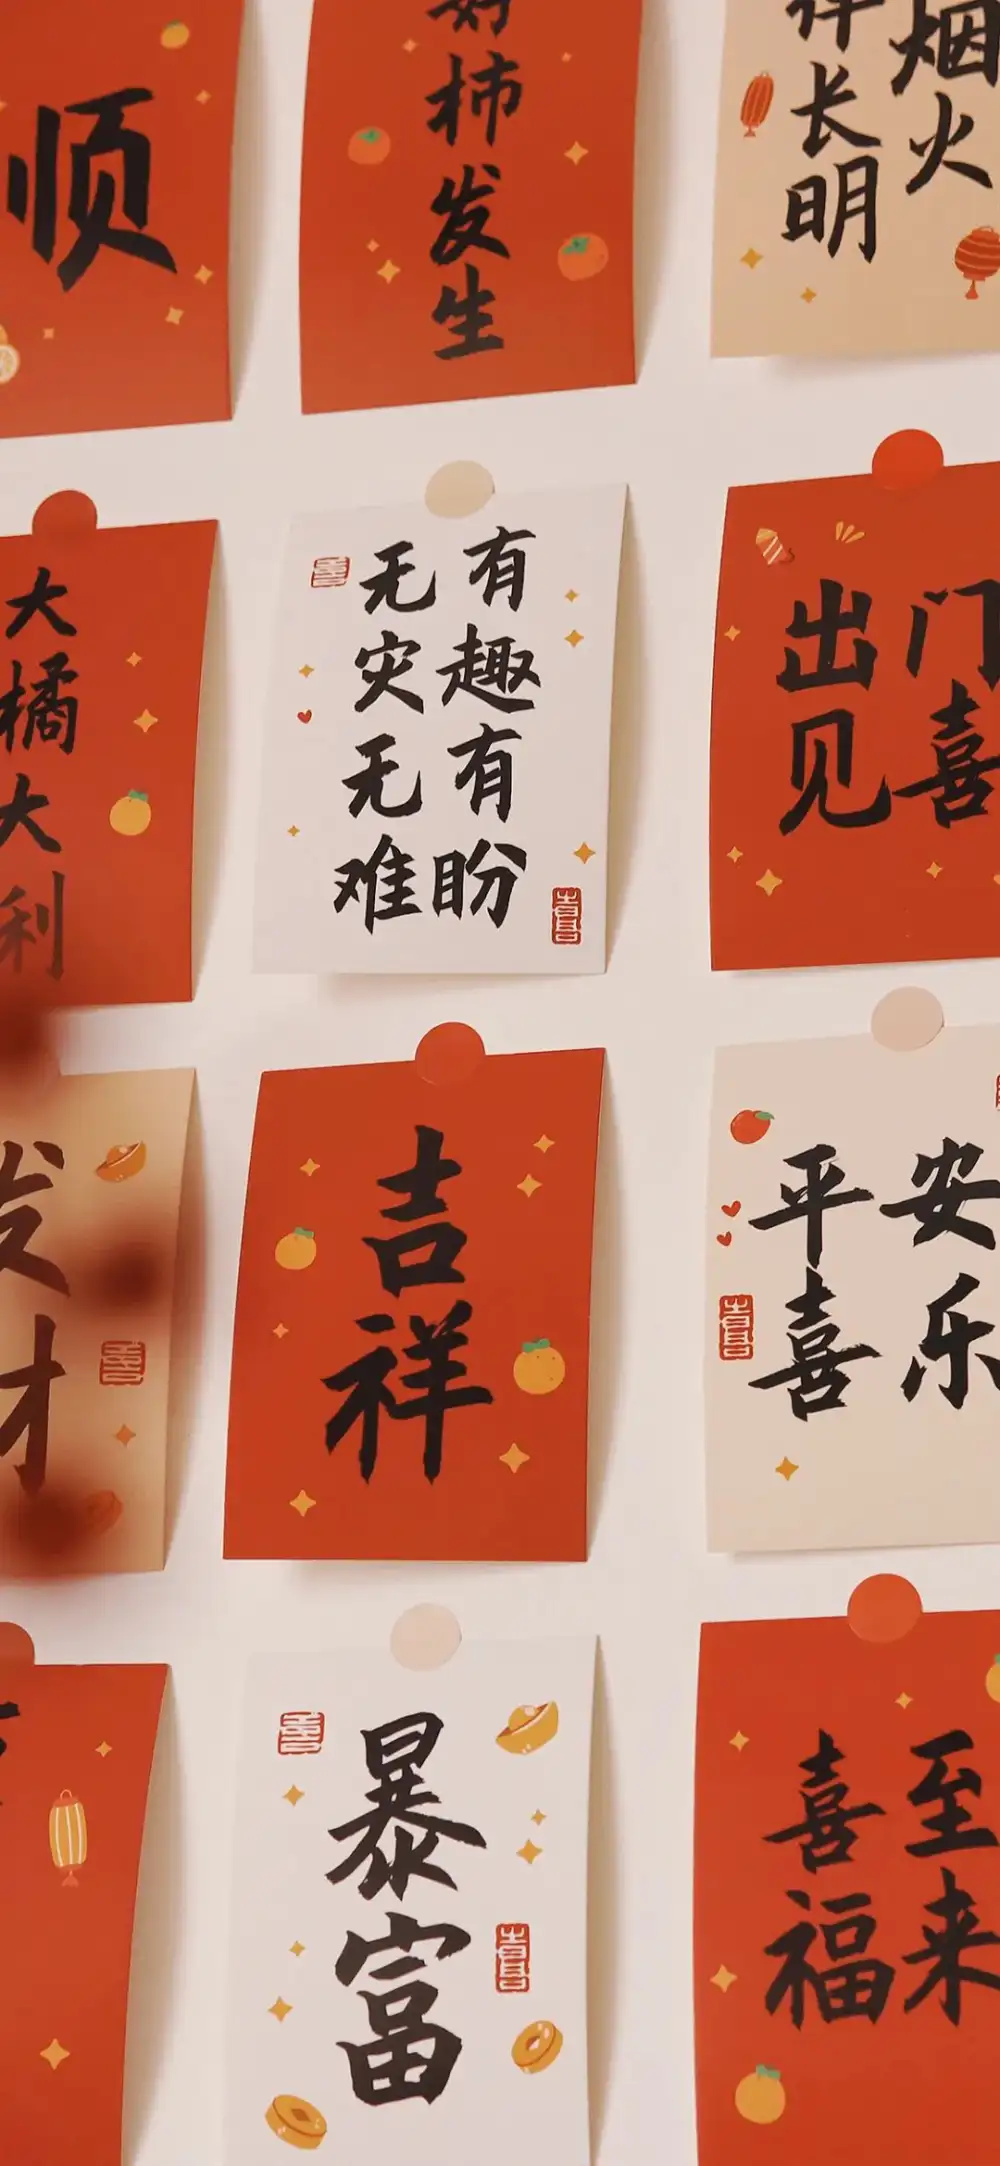 顺
好柿发生
烟火
祥长明
大橘大利
有趣有盼
无灾无难
出门
见喜
发财
吉祥
平安
喜乐
暴富
喜至
福来